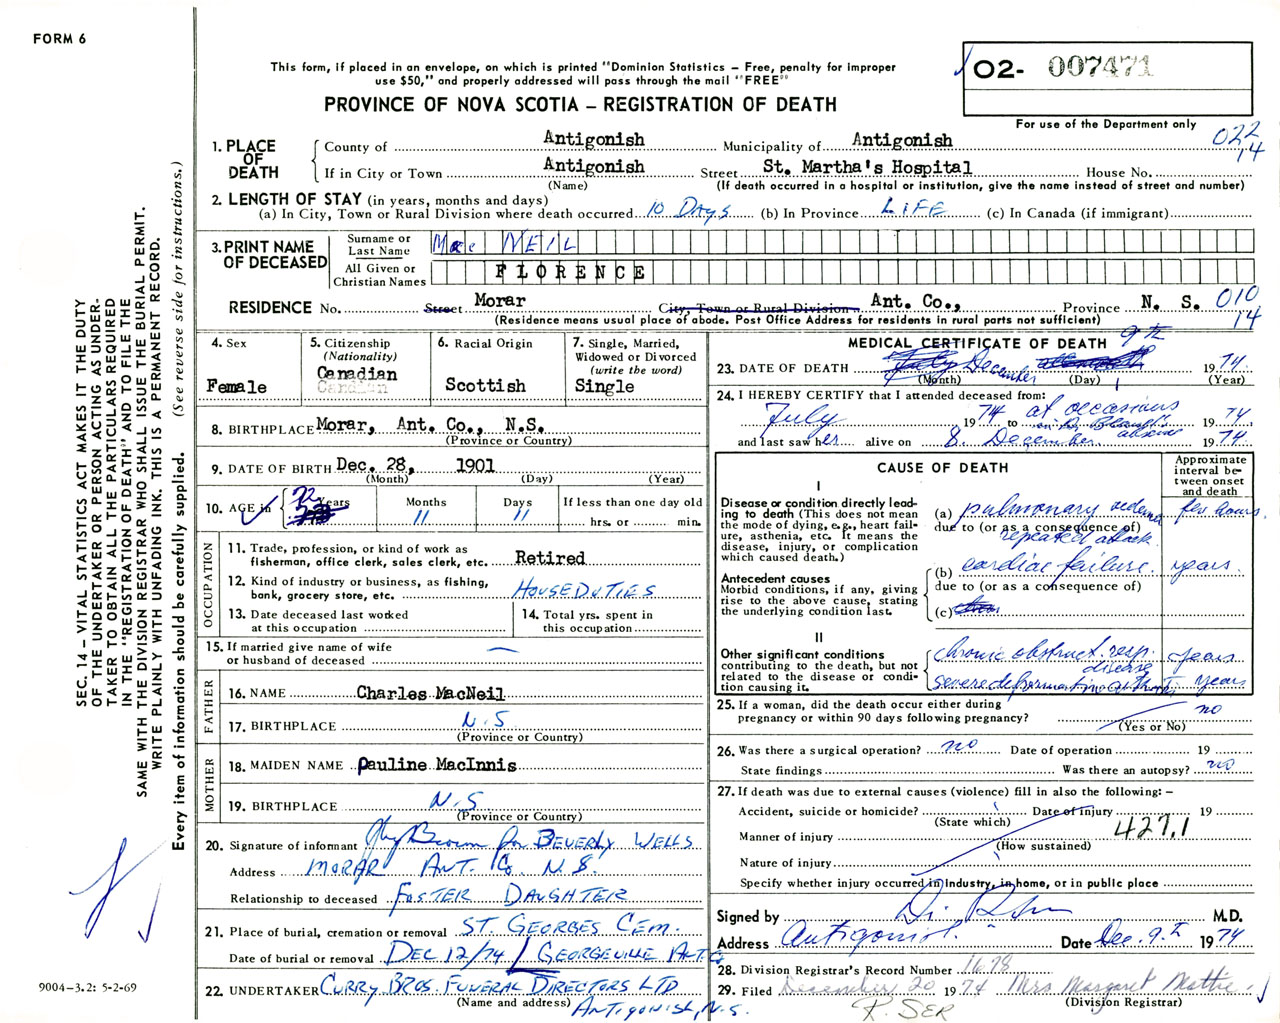 FORM 6
This form, if placed in an envelope, on which is printed "Dominion Statistics – Free, penalty for improper
use $50," and properly addressed will pass through the mail "FREE"
PROVINCE OF NOVA SCOTIA – REGISTRATION OF DEATH
O2- 007471
For use of the Department only
022
14
1. PLACE OF DEATH
County of Antigonish Municipality of Antigonish
If in City or Town Antigonish Street St. Martha's Hospital House No.
(Name) (If death occurred in a hospital or institution, give the name instead of street and number)
2. LENGTH OF STAY (in years, months and days)
(a) In City, Town or Rural Division where death occurred 10 DAYS (b) In Province LIFE (c) In Canada (if immigrant)
3. PRINT NAME OF DECEASED
Surname or Last Name Mac NEIL
All Given or Christian Names FLORENCE
RESIDENCE No. Street Morar City, Town or Rural Division Ant. Co., Province N. S. 010
14
(Residence means usual place of abode. Post Office Address for residents in rural parts not sufficient)
4. Sex
Female
5. Citizenship
(Nationality)
Canadian
6. Racial Origin
Scottish
7. Single, Married,
Widowed or Divorced
(write the word)
Single
8. BIRTHPLACE Morar, Ant. Co., N.S.
(Province or Country)
9. DATE OF BIRTH Dec. 28, 1901
(Month) (Day) (Year)
10. AGE in 72 Years Months 11 Days 11 If less than one day old
hrs. or min.
OCCUPATION
11. Trade, profession, or kind of work as
fisherman, office clerk, sales clerk, etc. Retired
12. Kind of industry or business, as fishing,
bank, grocery store, etc. HOUSE DUTIES
13. Date deceased last worked
at this occupation
14. Total yrs. spent in
this occupation
15. If married give name of wife
or husband of deceased —
FATHER
16. NAME Charles MacNeil
17. BIRTHPLACE N.S
(Province or Country)
MOTHER
18. MAIDEN NAME Pauline MacInnis
19. BIRTHPLACE N.S
(Province or Country)
20. Signature of informant Brown for BEVERLY WELLS
Address MORAR ANT. Co. N.S.
Relationship to deceased FOSTER DAUGHTER
21. Place of burial, cremation or removal ST. GEORGES CEM.
Date of burial or removal DEC 12/74 / GEORGEVILLE ANT. Co
22. UNDERTAKER CURRY BROS. FUNERAL DIRECTORS LTD
(Name and address) ANTIGONISH, N.S.
MEDICAL CERTIFICATE OF DEATH
23. DATE OF DEATH December 9th 1974
(Month) (Day) (Year)
24. I HEREBY CERTIFY that I attended deceased from:
July 1974 to at occasions 1974
in Dr absence
and last saw her alive on 8 December 1974
CAUSE OF DEATH
Approximate
interval be-
tween onset
and death
I
Disease or condition directly lead-
ing to death (This does not mean
the mode of dying, e.g., heart fail-
ure, asthenia, etc. It means the
disease, injury, or complication
which caused death.)
(a) pulmonary oedema few hours
due to (or as a consequence of)
repeated attack
Antecedent causes
Morbid conditions, if any, giving
rise to the above cause, stating
the underlying condition last.
(b) cardiac failure. years.
due to (or as a consequence of)
(c)
II
Other significant conditions
contributing to the death, but not
related to the disease or condi-
tion causing it.
chronic obstruct. resp. disease years
severe deformating arthritis years
25. If a woman, did the death occur either during
pregnancy or within 90 days following pregnancy? no
(Yes or No)
26. Was there a surgical operation? no Date of operation 19
State findings Was there an autopsy? no
27. If death was due to external causes (violence) fill in also the following: –
Accident, suicide or homicide? Date of injury 19
(State which)
Manner of injury 427.1
(How sustained)
Nature of injury
Specify whether injury occurred in Industry, in home, or in public place
Signed by M.D.
Address Antigonish Date Dec. 9th 1974
28. Division Registrar's Record Number 1678
29. Filed December 20 1974 Mrs Margaret Mattie
(Division Registrar)
R. SER
SEC. 14 – VITAL STATISTICS ACT MAKES IT THE DUTY
OF THE UNDERTAKER OR PERSON ACTING AS UNDER-
TAKER TO OBTAIN ALL THE PARTICULARS REQUIRED
IN THE "REGISTRATION OF DEATH" AND TO FILE THE
SAME WITH THE DIVISION REGISTRAR WHO SHALL ISSUE THE BURIAL PERMIT.
WRITE PLAINLY WITH UNFADING INK. THIS IS A PERMANENT RECORD.
Every item of information should be carefully supplied. (See reverse side for instructions.)
9004–3.2: 5-2-69